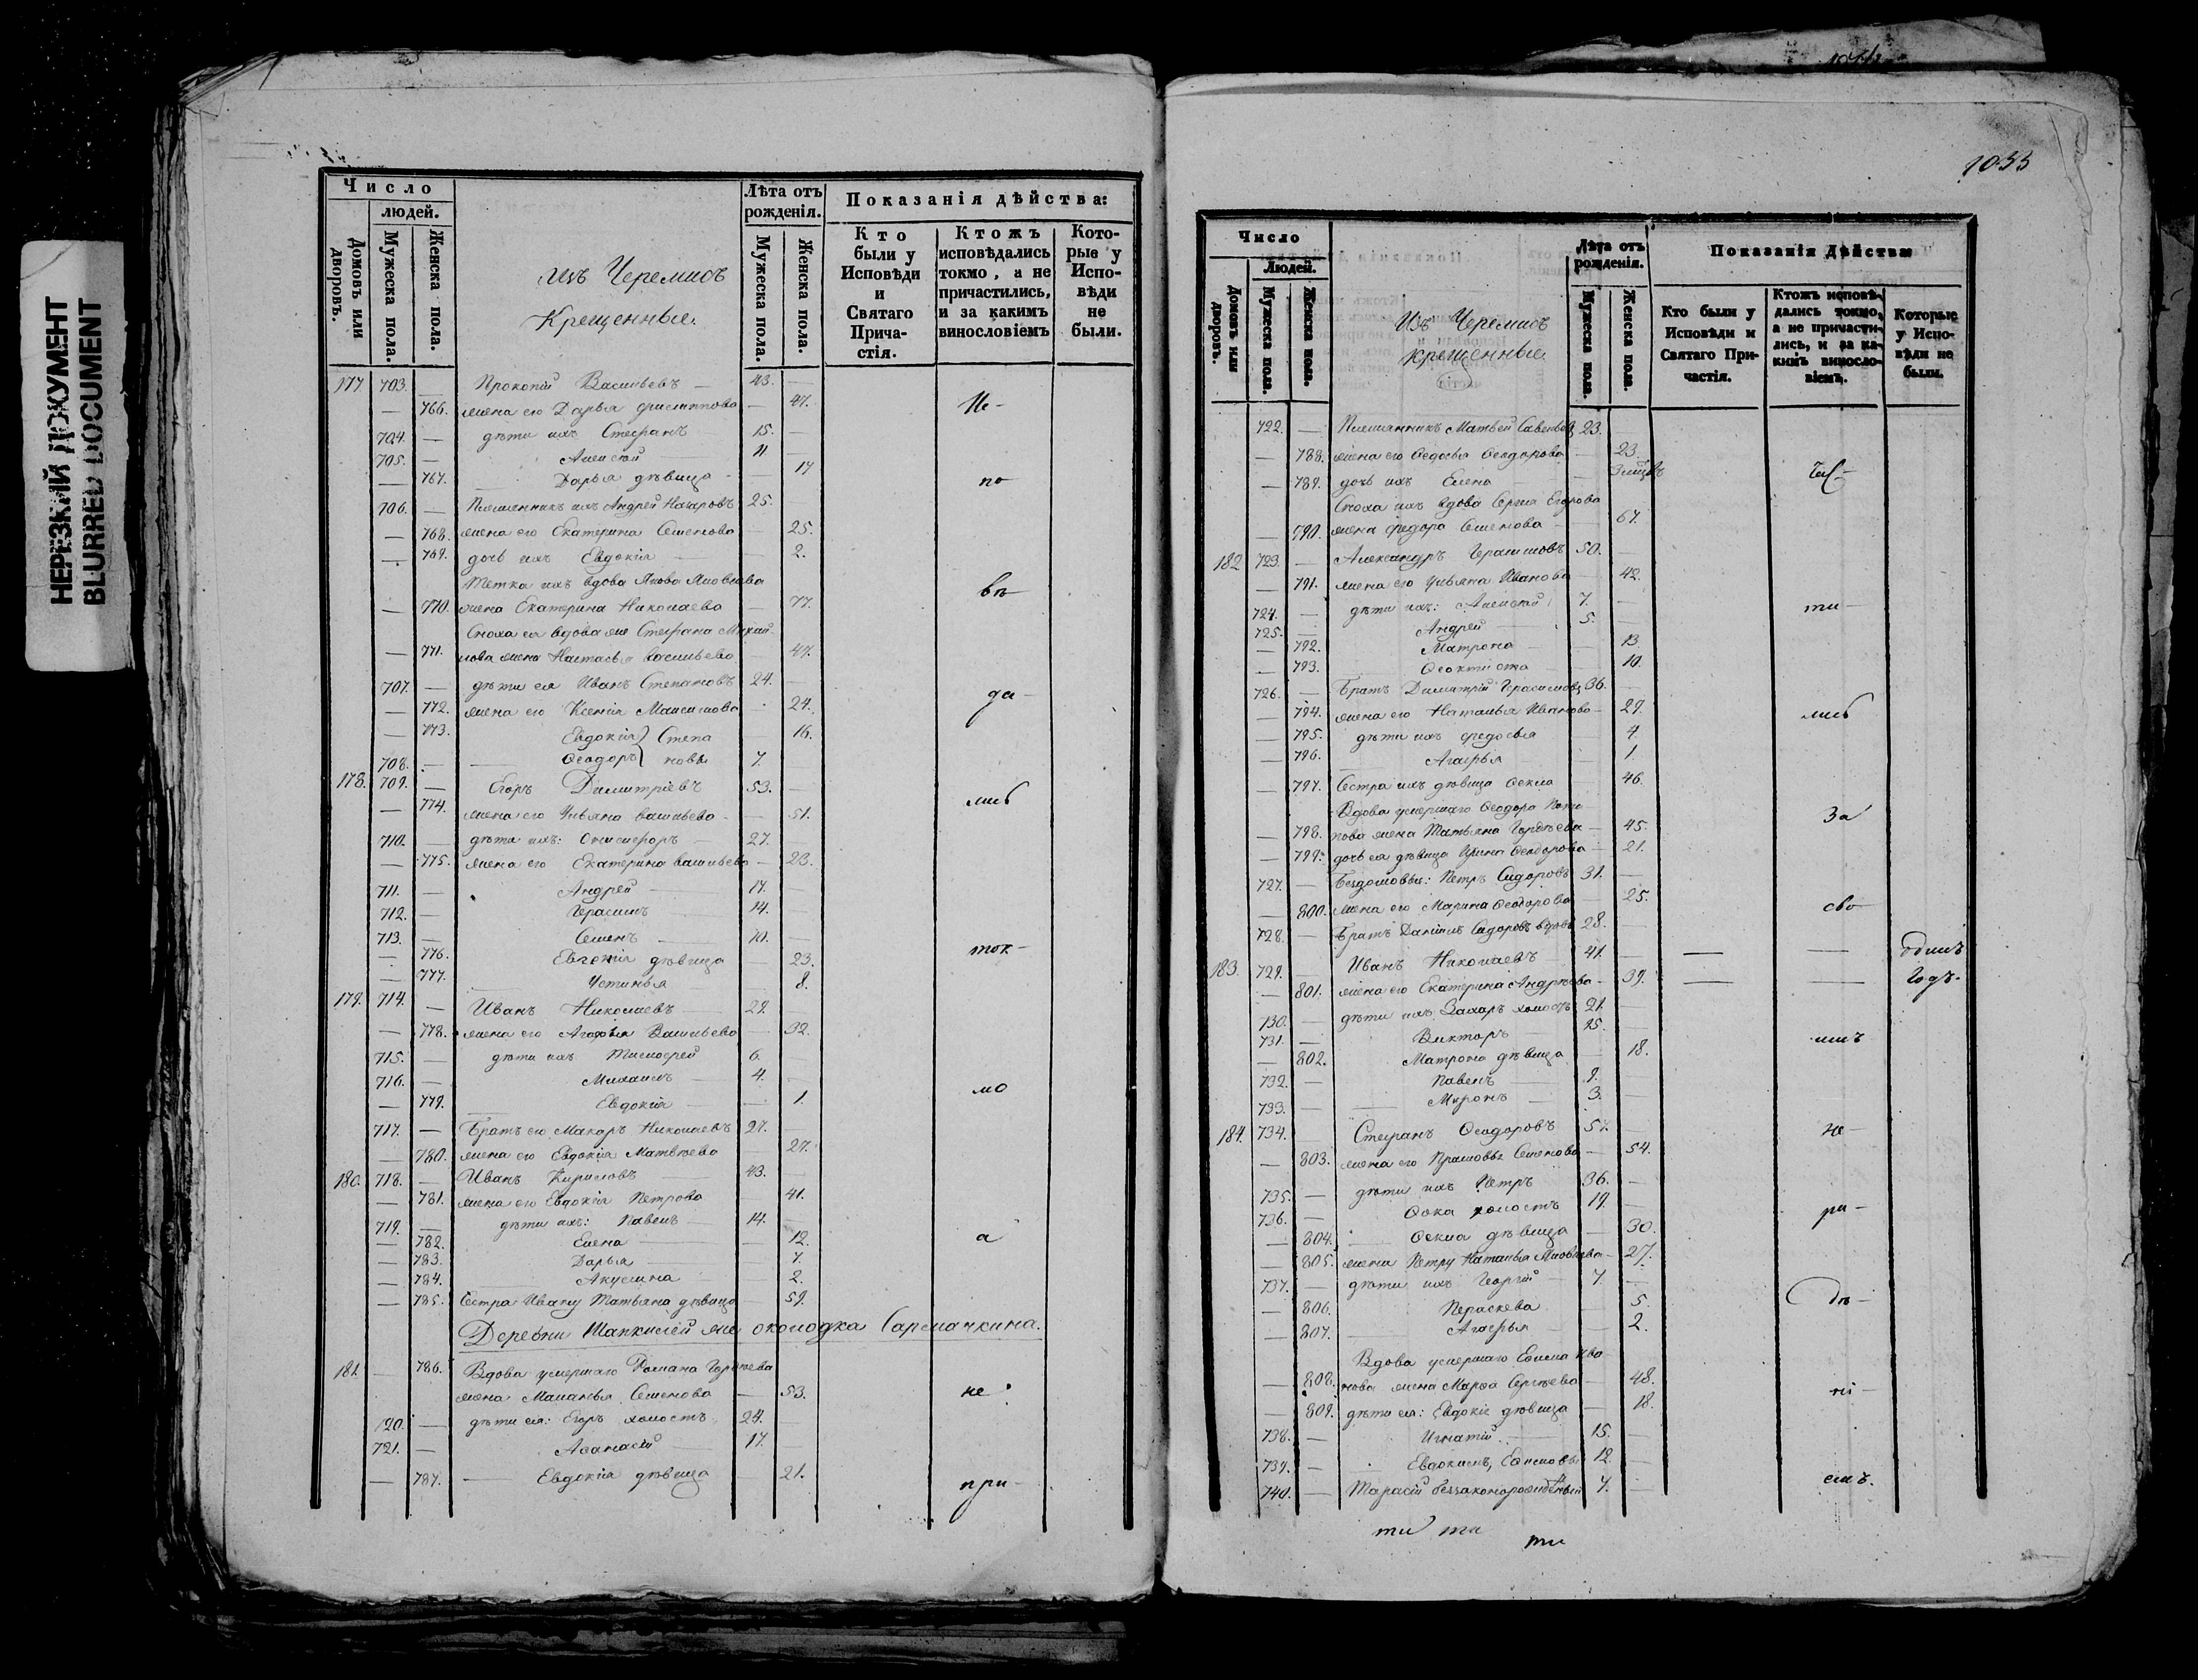 НЕРЕЗКИЙ ДОКУМЕНТ
BLURRED DOCUMENT
Число
людей.
Домовъ или дворовъ.
Мужеска пола.
Женска пола.
Изъ Черемисъ
Крещенные.
Лѣта отъ рожденія.
Мужеска пола.
Женска пола.
Показанія дѣйства:
Кто были у Исповѣди и Святаго Причастія.
Ктожъ исповѣдались токмо, а не причастились, и за какимъ винословіемъ
Которые у Исповѣди не были.
177. 703. — Прокопій Васильевъ — 43. —
— 766. жена его Дарья Филиппова — 47. Ис-
704. — дѣти ихъ Стефанъ — 15.
705. — Алексѣй — 11
— 767. Дарья дѣвица — 17 по
706. — Племянникъ ихъ Андрей Назаровъ 25.
— 768. жена его Екатерина Семенова — 25.
— 769. дочь ихъ Евдокія — 2.
Тетка ихъ вдова Якова Яковлева
— 770. жена Екатерина Николаева — 77. вѣ-
Сноха ея вдова же Стефана Михай-
— 771. лова жена Настасья Васильева — 47.
707. — дѣти ея Иванъ Степановъ 24. —
— 772. жена его Ксенія Максимова — 24. да-
— 773. Евдокія } Степа — 16.
708. — Ѳеодоръ } новы 7.
178. 709. — Егоръ Димитріевъ 53. —
— 774. жена его Ульяна Васильева — 51. лись
710. — дѣти ихъ: Онисифоръ — 27.
— 775. жена его Екатерина Васильева — 23.
711. — Андрей — 17. —
712. — Герасимъ — 14.
713. — Семенъ — 10. —
— 776. Евгенія дѣвица — 23. ток-
— 777. Устинья — 8.
179. 714. — Иванъ Николаевъ — 29. —
— 778. жена его Агафья Васильева — 32.
715. — дѣти ихъ Тимофей 6. —
716. — Михаилъ — 4. —
— 779. Евдокія — 1. мо
717. — Братъ его Макаръ Николаевъ 27. —
— 780. жена его Евдокія Матвѣева — 27.
180. 718. — Иванъ Кириловъ — 43. —
— 781. жена его Евдокія Петрова — 41.
719. — дѣти ихъ: Павелъ — 14. —
— 782. Елена — 12. а
— 783. Дарья — 7.
— 784. Акулина — 2.
— 785. Сестра Ивану Татьяна дѣвица — 59.
Деревни Шапкилей же околодка Сармачкина.
181. — 786. Вдова умершаго Романа Гордѣева
жена Маланья Семенова — 53. не
20. — дѣти ея: Егоръ холостъ 24.
721. — Аѳанасій — 17. —
— 787. Евдокія дѣвица — 21. при-
1033
Число
Людей.
Домовъ или дворовъ.
Мужеска пола.
Женска пола.
Изъ Черемисъ
крещенные.
Лѣта отъ рожденія.
Мужеска пола.
Женска пола.
Показанія Дѣйства:
Кто были у Исповѣди и Святаго Причастія.
Ктожъ исповѣдались токмо, а не причастились, и за какимъ винословіемъ.
Которые у Исповѣди не были.
722. — Племянникъ Матвей Савельевъ 23.
— 788. жена его Ѳедосья Ѳеодорова — 23
— 789. дочь ихъ Елена — час-
Сноха ихъ вдова Егорова
— 790. жена Федора Семенова — 67.
182. 723. — Александръ Герасимовъ 50. —
— 791. жена его Ульяна Иванова — 42.
724. — дѣти ихъ: Алексѣй 7. — ти-
725. — Андрей — 5.
— 792. Матрона — 13.
— 793. Ѳеоктиста — 10.
726. — Братъ Димитрій Герасимовъ 36. —
— 794. жена его Наталья Иванова — 29. лись
— 795. дѣти ихъ Федосья — 4.
— 796. Агафья — 1
— 797. Сестра ихъ дѣвица Ѳекла — 46.
Вдова умершаго Ѳеодора
— 798. пова жена Татьяна Гордѣева — 45. За
— 799. дочь ея дѣвица Ирина Ѳеодорова — 21.
727. — Бездомовые: Петръ Сидоровъ 31. —
— 800. жена его Марина Ѳеодорова — 25. сво-
728. — Братъ Даніилъ Сидоровъ вдовъ 28. —
183. 729. — Иванъ Николаевъ — 41. — — — одинъ
— 801. жена его Екатерина Андрѣева — 39. — — годъ.
730. — дѣти ихъ Захаръ холостъ 21. —
731. — Викторъ 15. имъ
— 802. Матрона дѣвица — 18.
732. — Павелъ — 9.
733. — Миронъ — 3. —
184. 734. — Стефанъ Ѳеодоровъ 57. — не-
— 803. жена его Прасковья Семенова — 54.
735. — дѣти ихъ Петръ 36. —
736. — Ѳока холостъ 19. — ра-
— 804. Ѳекла дѣвица — 30.
— 805. жена Петру Наталья Яковлева — 27.
737. — дѣти ихъ Георгій — 7. — дѣ-
— 806. Пераскева — 5.
— 807. Агафья — 2.
Вдова умершаго Ефима Ива-
— 808. нова жена Марѳа Сергѣева — 48. ні-
— 809. дѣти ея: Евдокія дѣвица — 18.
738. — Игнатій — 15. —
739. — Евдокимъ, Ефимовы 12. —
740. — Тарасій беззаконорожденный 7. — емъ.
ти ти
ти